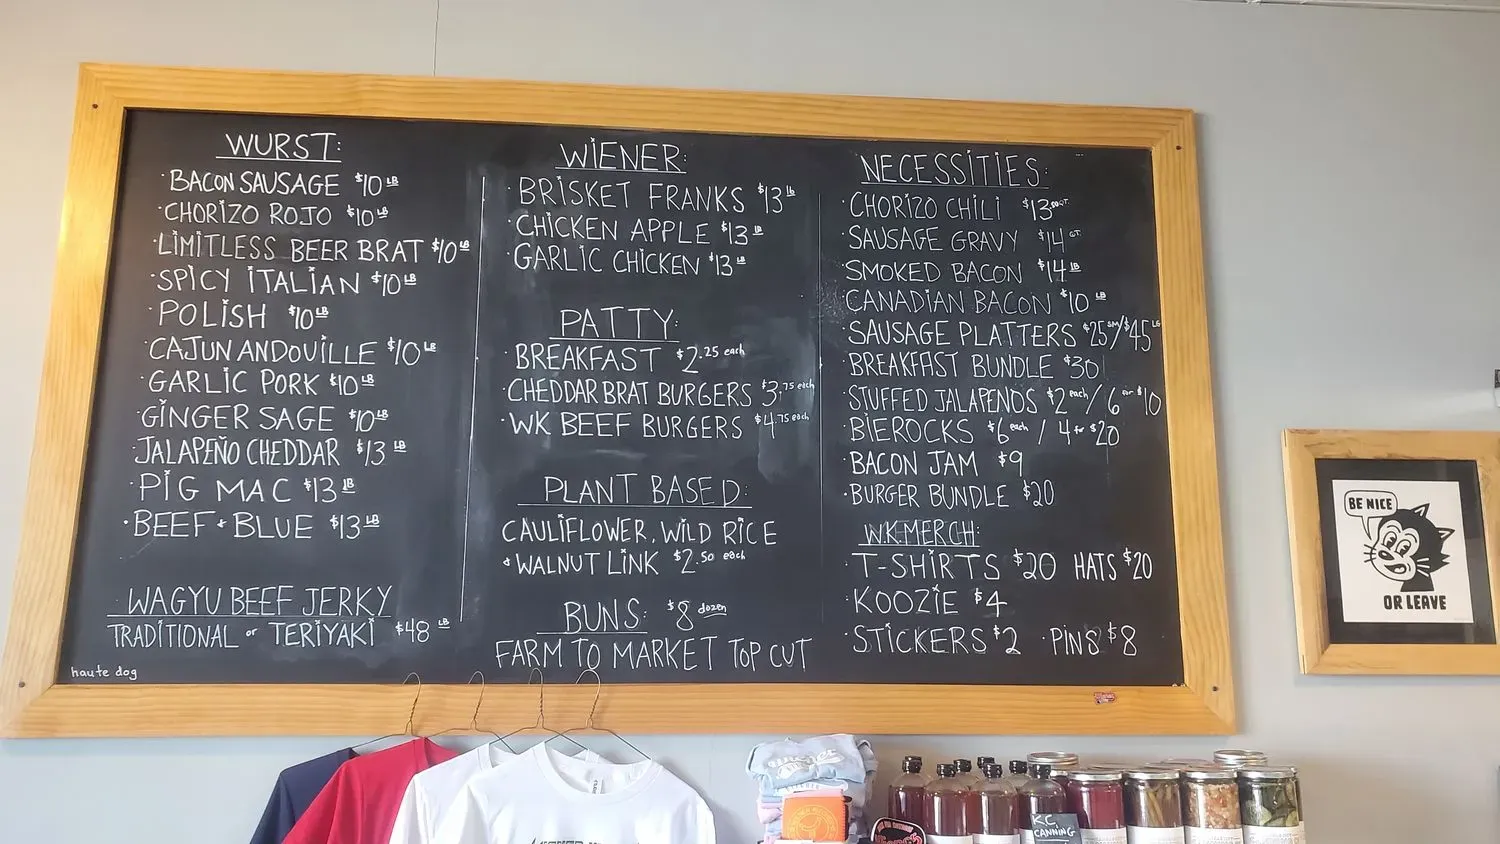 WURST:
· BACON SAUSAGE $10 LB
· CHORIZO ROJO $10 LB
· LIMITLESS BEER BRAT $10 LB
· SPICY ITALIAN $10 LB
· POLISH $10 LB
· CAJUN ANDOUILLE $10 LB
· GARLIC PORK $10 LB
· GINGER SAGE $10 LB
· JALAPEÑO CHEDDAR $13 LB
· PIG MAC $13 LB
· BEEF + BLUE $13 LB
WAGYU BEEF JERKY
TRADITIONAL or TERIYAKI $48 LB
haute dog
WIENER:
· BRISKET FRANKS $13 lb
· CHICKEN APPLE $13 LB
· GARLIC CHICKEN $13 LB
PATTY:
· BREAKFAST $2.25 each
· CHEDDAR BRAT BURGERS $3.75 each
· WK BEEF BURGERS $4.75 each
PLANT BASED:
CAULIFLOWER, WILD RICE
+ WALNUT LINK $2.50 each
BUNS: $8 dozen
FARM TO MARKET TOP CUT
NECESSITIES:
· CHORIZO CHILI $13
· SAUSAGE GRAVY $14 QT.
· SMOKED BACON $14 LB
· CANADIAN BACON $10 LB
· SAUSAGE PLATTERS $25 SM/$45 LG
· BREAKFAST BUNDLE $30
· STUFFED JALAPENOS $2 each / 6 for $10
· BIEROCKS $6 each / 4 for $20
· BACON JAM $9
· BURGER BUNDLE $20
W.K. MERCH:
· T-SHIRTS $20 HATS $20
· KOOZIE $4
· STICKERS $2 · PINS $8
BE NICE
OR LEAVE
KC
CANNING